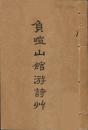 負暄山館游詩艸